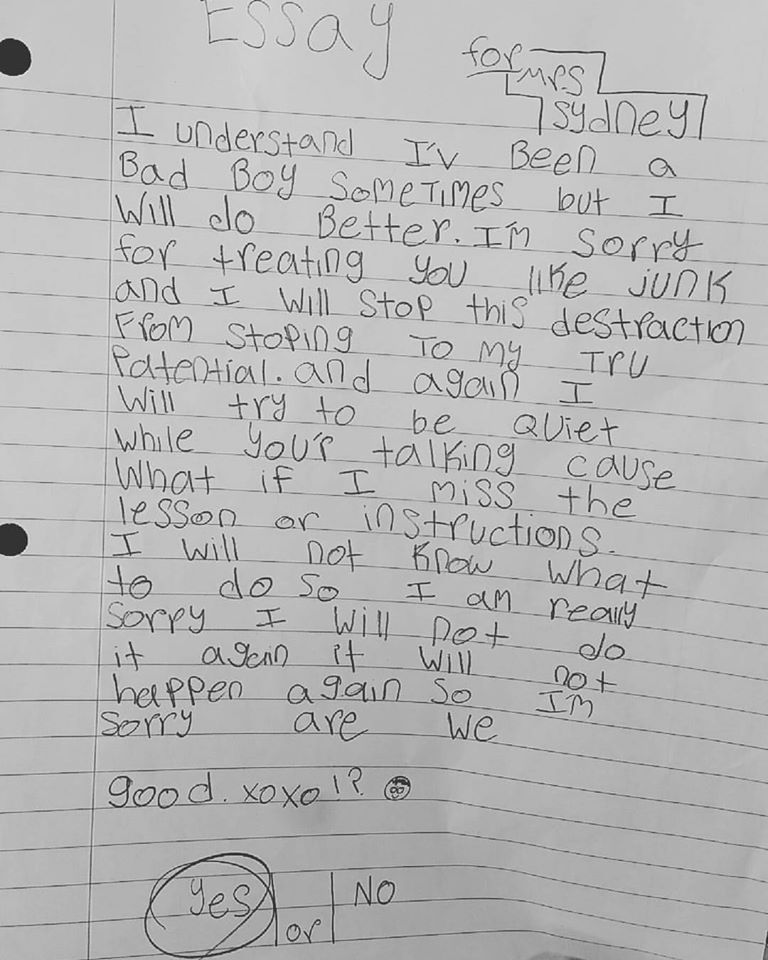 Essay
for
Mrs
Sydney
I understand I'v Been a
Bad Boy SomeTimes but I
Will do Better. I'm Sorry
for treating you like junk
and I Will Stop this destraction
From Stoping To my Tru
Patential. and again I
Will try to be Quiet
while you'r talking cause
What if I miss the
lesson or instructions.
I will not Know what
to do So I am really
Sorry I Will not do
it again it will not
happen again So I'm
Sorry are we
good. xoxo!?
Yes or NO